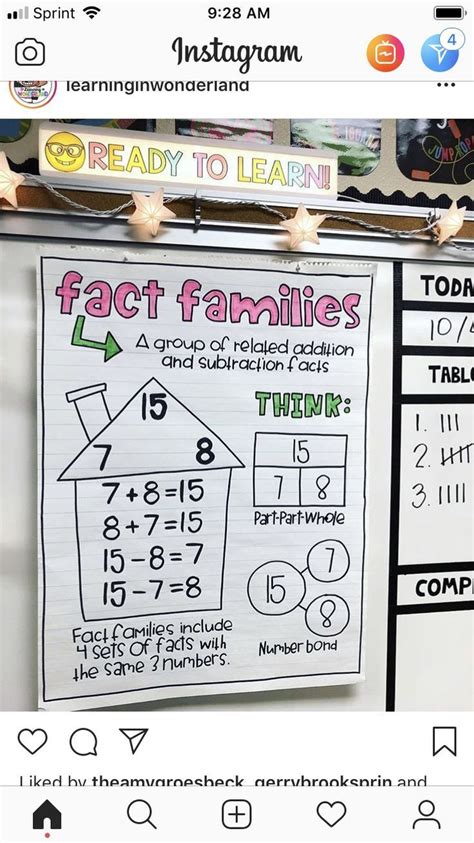 Sprint 9:28 AM
Instagram
4
learninginwonderland
READY TO LEARN!
JUMPROP
fact families
A group of related addition
and subtraction facts
15
7 8
7+8=15
8+7=15
15-8=7
15-7=8
Fact families include
4 sets of facts with
the same 3 numbers.
THINK:
15
7 8
Part-Part-Whole
7
15
8
Number bond
TODA
10/
TABL
1. |||
2. 
3. ||||
COMP
Liked by theamygroesbeck, gerrybrooksprin and